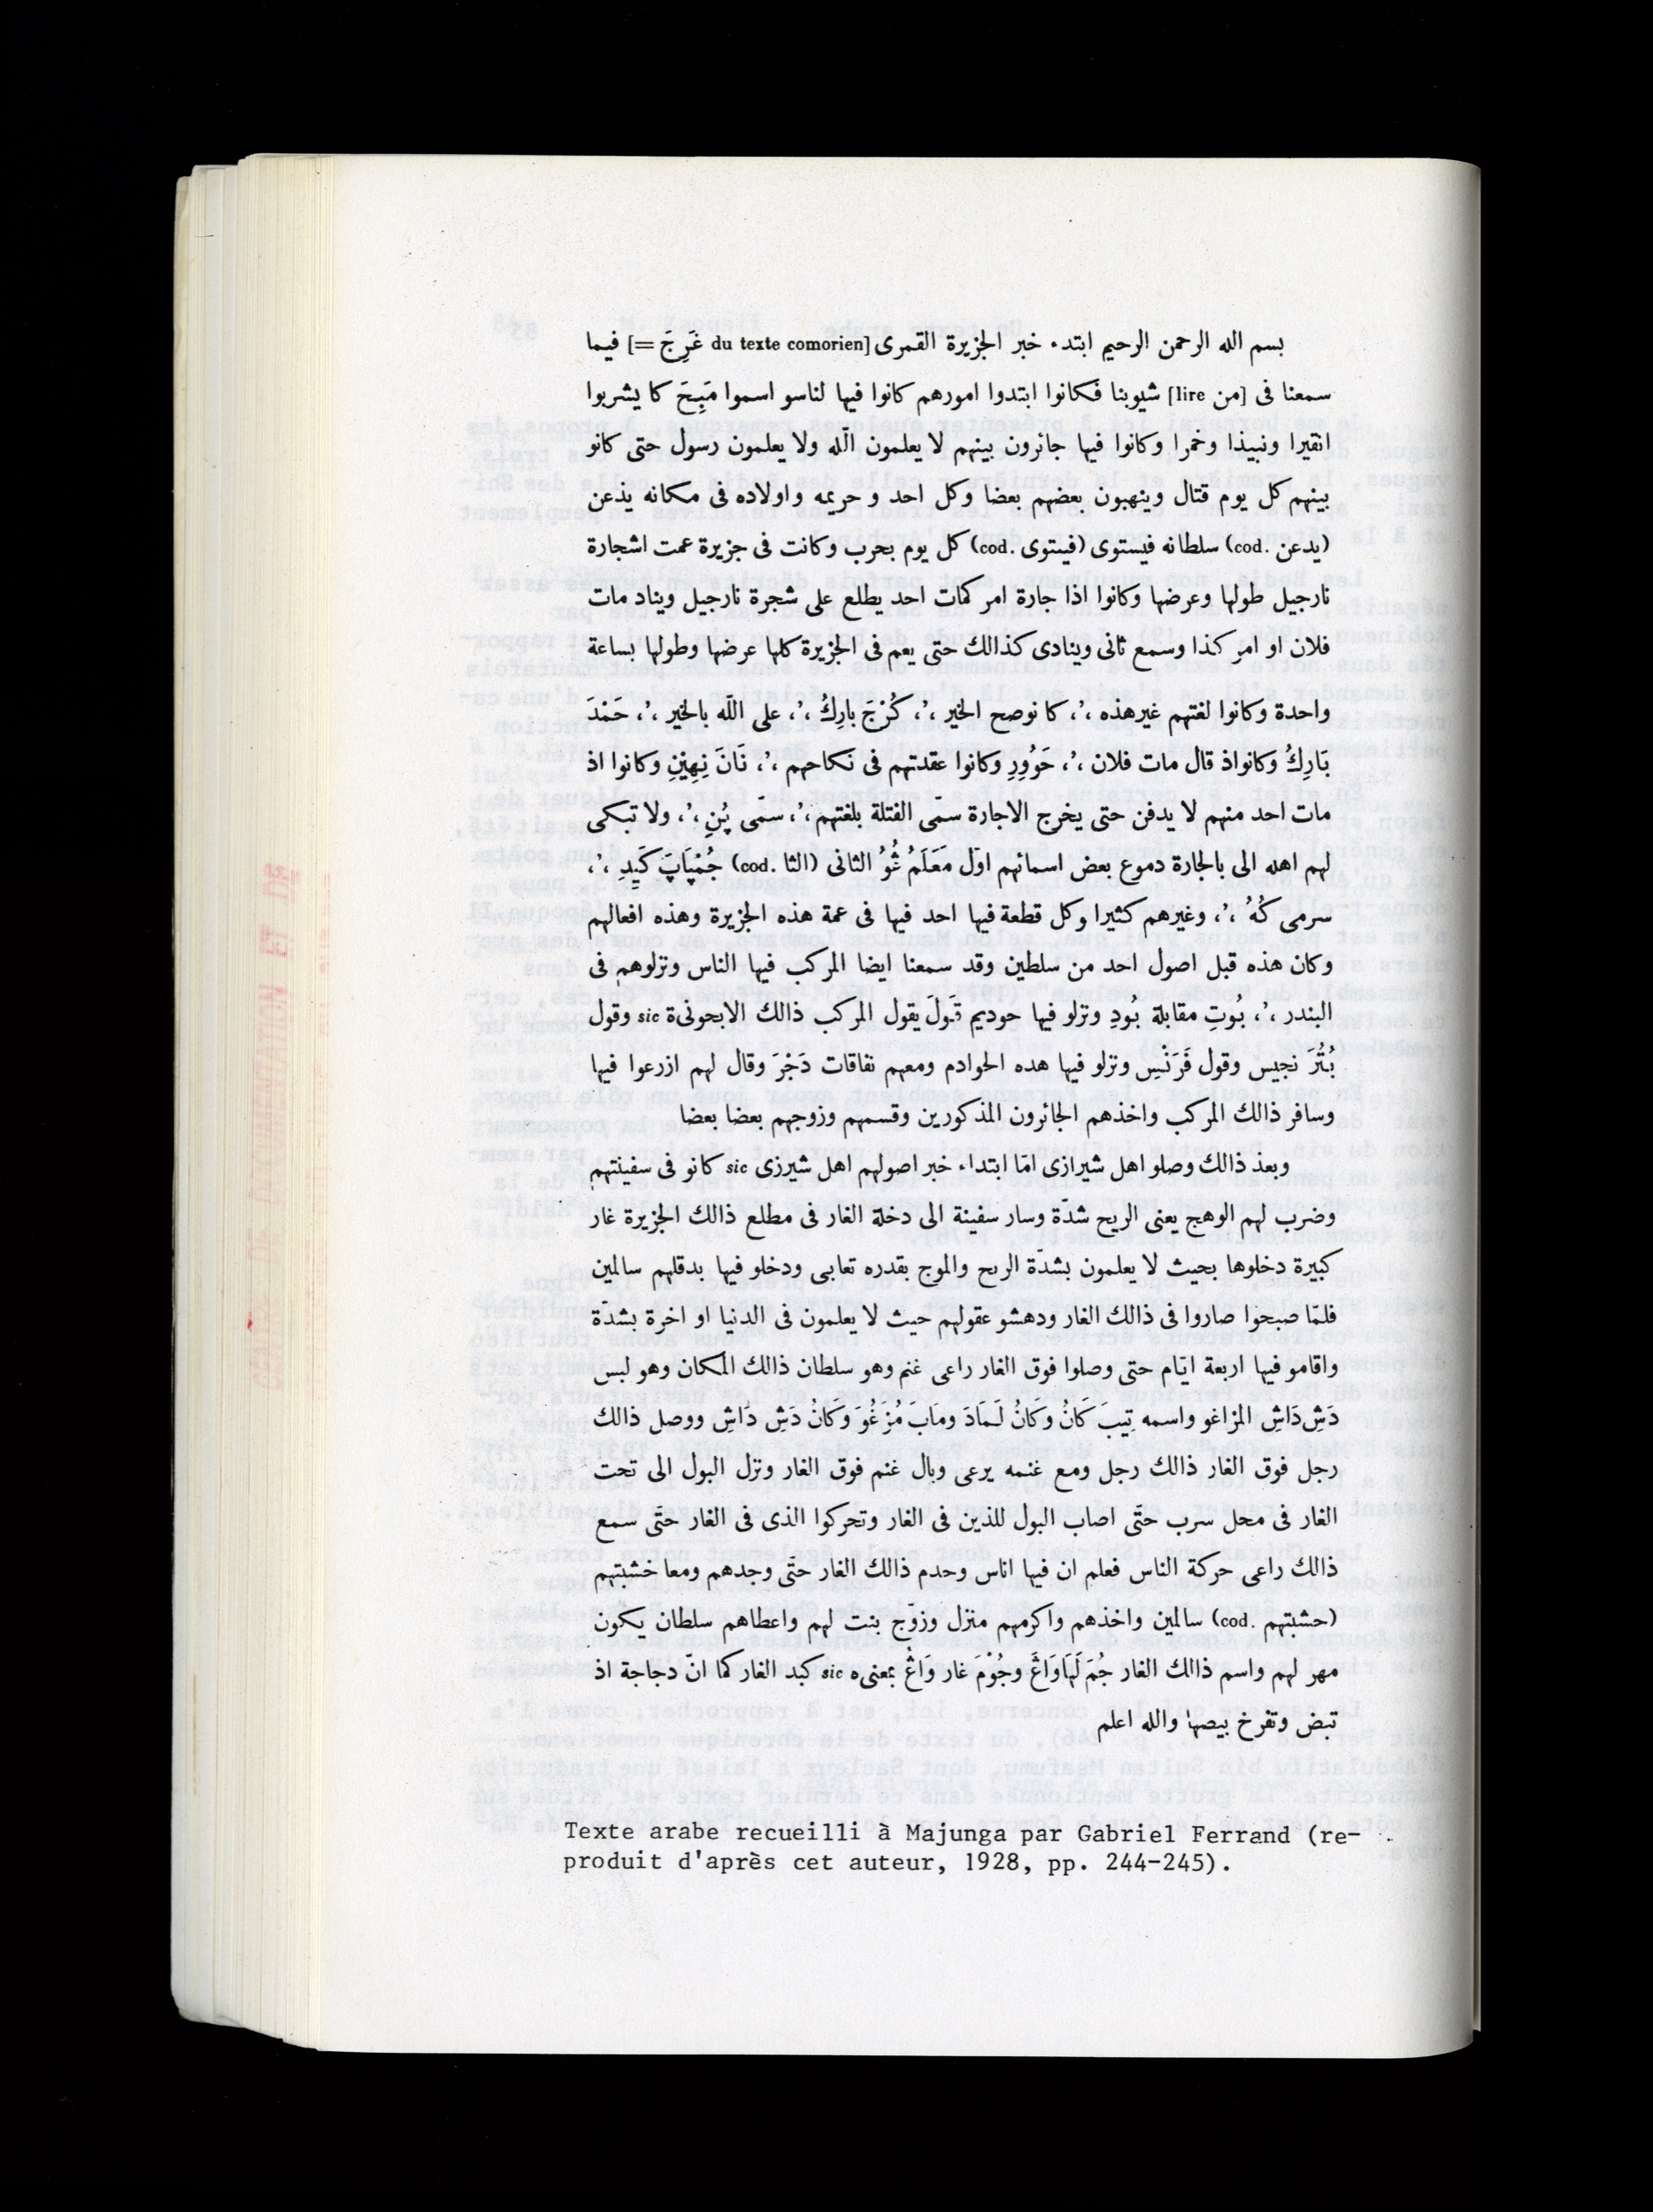 بسم الله الرحمن الرحيم ابتدء خبر الجزيرة القمرى [du texte comorien غَرِجَ =] فيما
سمعنا فى [lire من] شيوبنا فكانوا ابتدوا امورهم كانوا فيها لناسو اسموا مَبِحَ كا يشربوا
انقيرا ونبيذا وخمرا وكانوا فيها جائرون بينهم لا يعلمون الّله ولا يعلمون رسول حتى كانو
بينهم كل يوم قتال وينهبون بعضهم بعضا وكل احد و حريمه واولاده فى مكانه يذعن
(يدعن .cod) سلطانه فيستوى (فيىتوى .cod) كل يوم بحرب وكانت فى جزيرة عمت اشجارة
نارجيل طولها وعرضها وكانوا اذا جارة امر كمات احد يطلع على شجرة نارجيل ويناد مات
فلان او امر كذا وسمع ثانى وينادى كذالك حتى يعم فى الجزيرة كلها عرضها وطولها بساعة
واحدة وكانوا لغتهم غيرهذه ،’، كا نوصح الخير ،’، كُزْجَ بارِكُ ،’، على اللّه بالخير ،’، حَمْدَ
بَارِكُ وكانواذ قال مات فلان ،’، حَوُورِ وكانوا عقدتهم فى نكاحهم ،’، نَانَ نِهِيْنِ وكانوا اذ
مات احد منهم لا يدفن حتى يخرج الاجارة سمّى الفتلة بلغتهم ،’، سمّى پُنِ ،’، ولا تبكى
لهم اهله الى بالجارة دموع بعض اسمائهم اوّل مَعَلَمُ ثُوُ الثانى (الثا .cod) جُمْپَاپَ كَيِدِ ،’،
سرمى كُهُ ،’، وغيرهم كثيرا وكل قطعة فيها احد فيها فى عمة هذه الجزيرة وهذه افعالهم
وكان هذه قبل اصول احد من سلطين وقد سمعنا ايضا المركب فيها الناس ونزلوهم فى
البندر ،’، بُوتِ مقابلة بُودِ ونزلو فيها حوديم قَوِلَ يقول المركب ذالك الابحونىة sic وقول
بُتُرَ نجيس وقول فَرَنْسِ ونزلو فيها هده الحوادم ومعهم نفاقات دَجْرَ وقال لهم ازرعوا فيها
وسافر ذالك المركب واخذهم الجائرون المذكورين وقسمهم وزوجهم بعضا بعضا
وبعذ ذالك وصلو اهل شيرازى امّا ابتداء خبر اصولهم اهل شيرزى sic كانو فى سفينتهم
وضرب لهم الوهج يعنى الريح شدّة وسار سفينة الى دخلة الغار فى مطلع ذالك الجزيرة غار
كبيرة دخلوها بحيث لا يعلمون بشدّة الريح والموج بقدره تعابى ودخلو فيها بدقلهم سالمين
فلمّا صبحوا صاروا فى ذالك الغار ودهشو عقولهم حيث لا يعلمون فى الدنيا او اخرة بشدّة
واقامو فيها اربعة ايّام حتى وصلوا فوق الغار راعى غنم وهو سلطان ذالك المكان وهو لبس
دَشِ دَاشِ المزاغو واسمه تِيبَ كَانُ وكَانُ لَمَادَ ومَابَ مُزَغُوَ وكَانُ دَشِ دَاشِ ووصل ذالك
رجل فوق الغار ذالك رجل ومع غنمه يرعى وبال غنم فوق الغار ونزل البول الى تحت
الغار فى محل سرب حتّى اصاب البول للذين فى الغار وتحركوا الذى فى الغار حتّى سمع
ذالك راعى حركة الناس فعلم ان فيها اناس وحدم ذالك الغار حتّى وجدهم ومعا خشبتهم
(حشبتهم .cod) سالمين واخذهم واكرمهم منزل وزوّج بنت لهم واعطاهم سلطان يكون
مهر لهم واسم ذاالك الغار جُمَ لَهَاوَاغَ وجُوْمَ غار وَاغْ بمعنىه sic كبد الغار كما انّ دجاجة اذ
تبض وتفرخ بيصها والله اعلم
Texte arabe recueilli à Majunga par Gabriel Ferrand (re-
produit d'après cet auteur, 1928, pp. 244-245).
CENTRE DE DOCUMENTATION ET DE